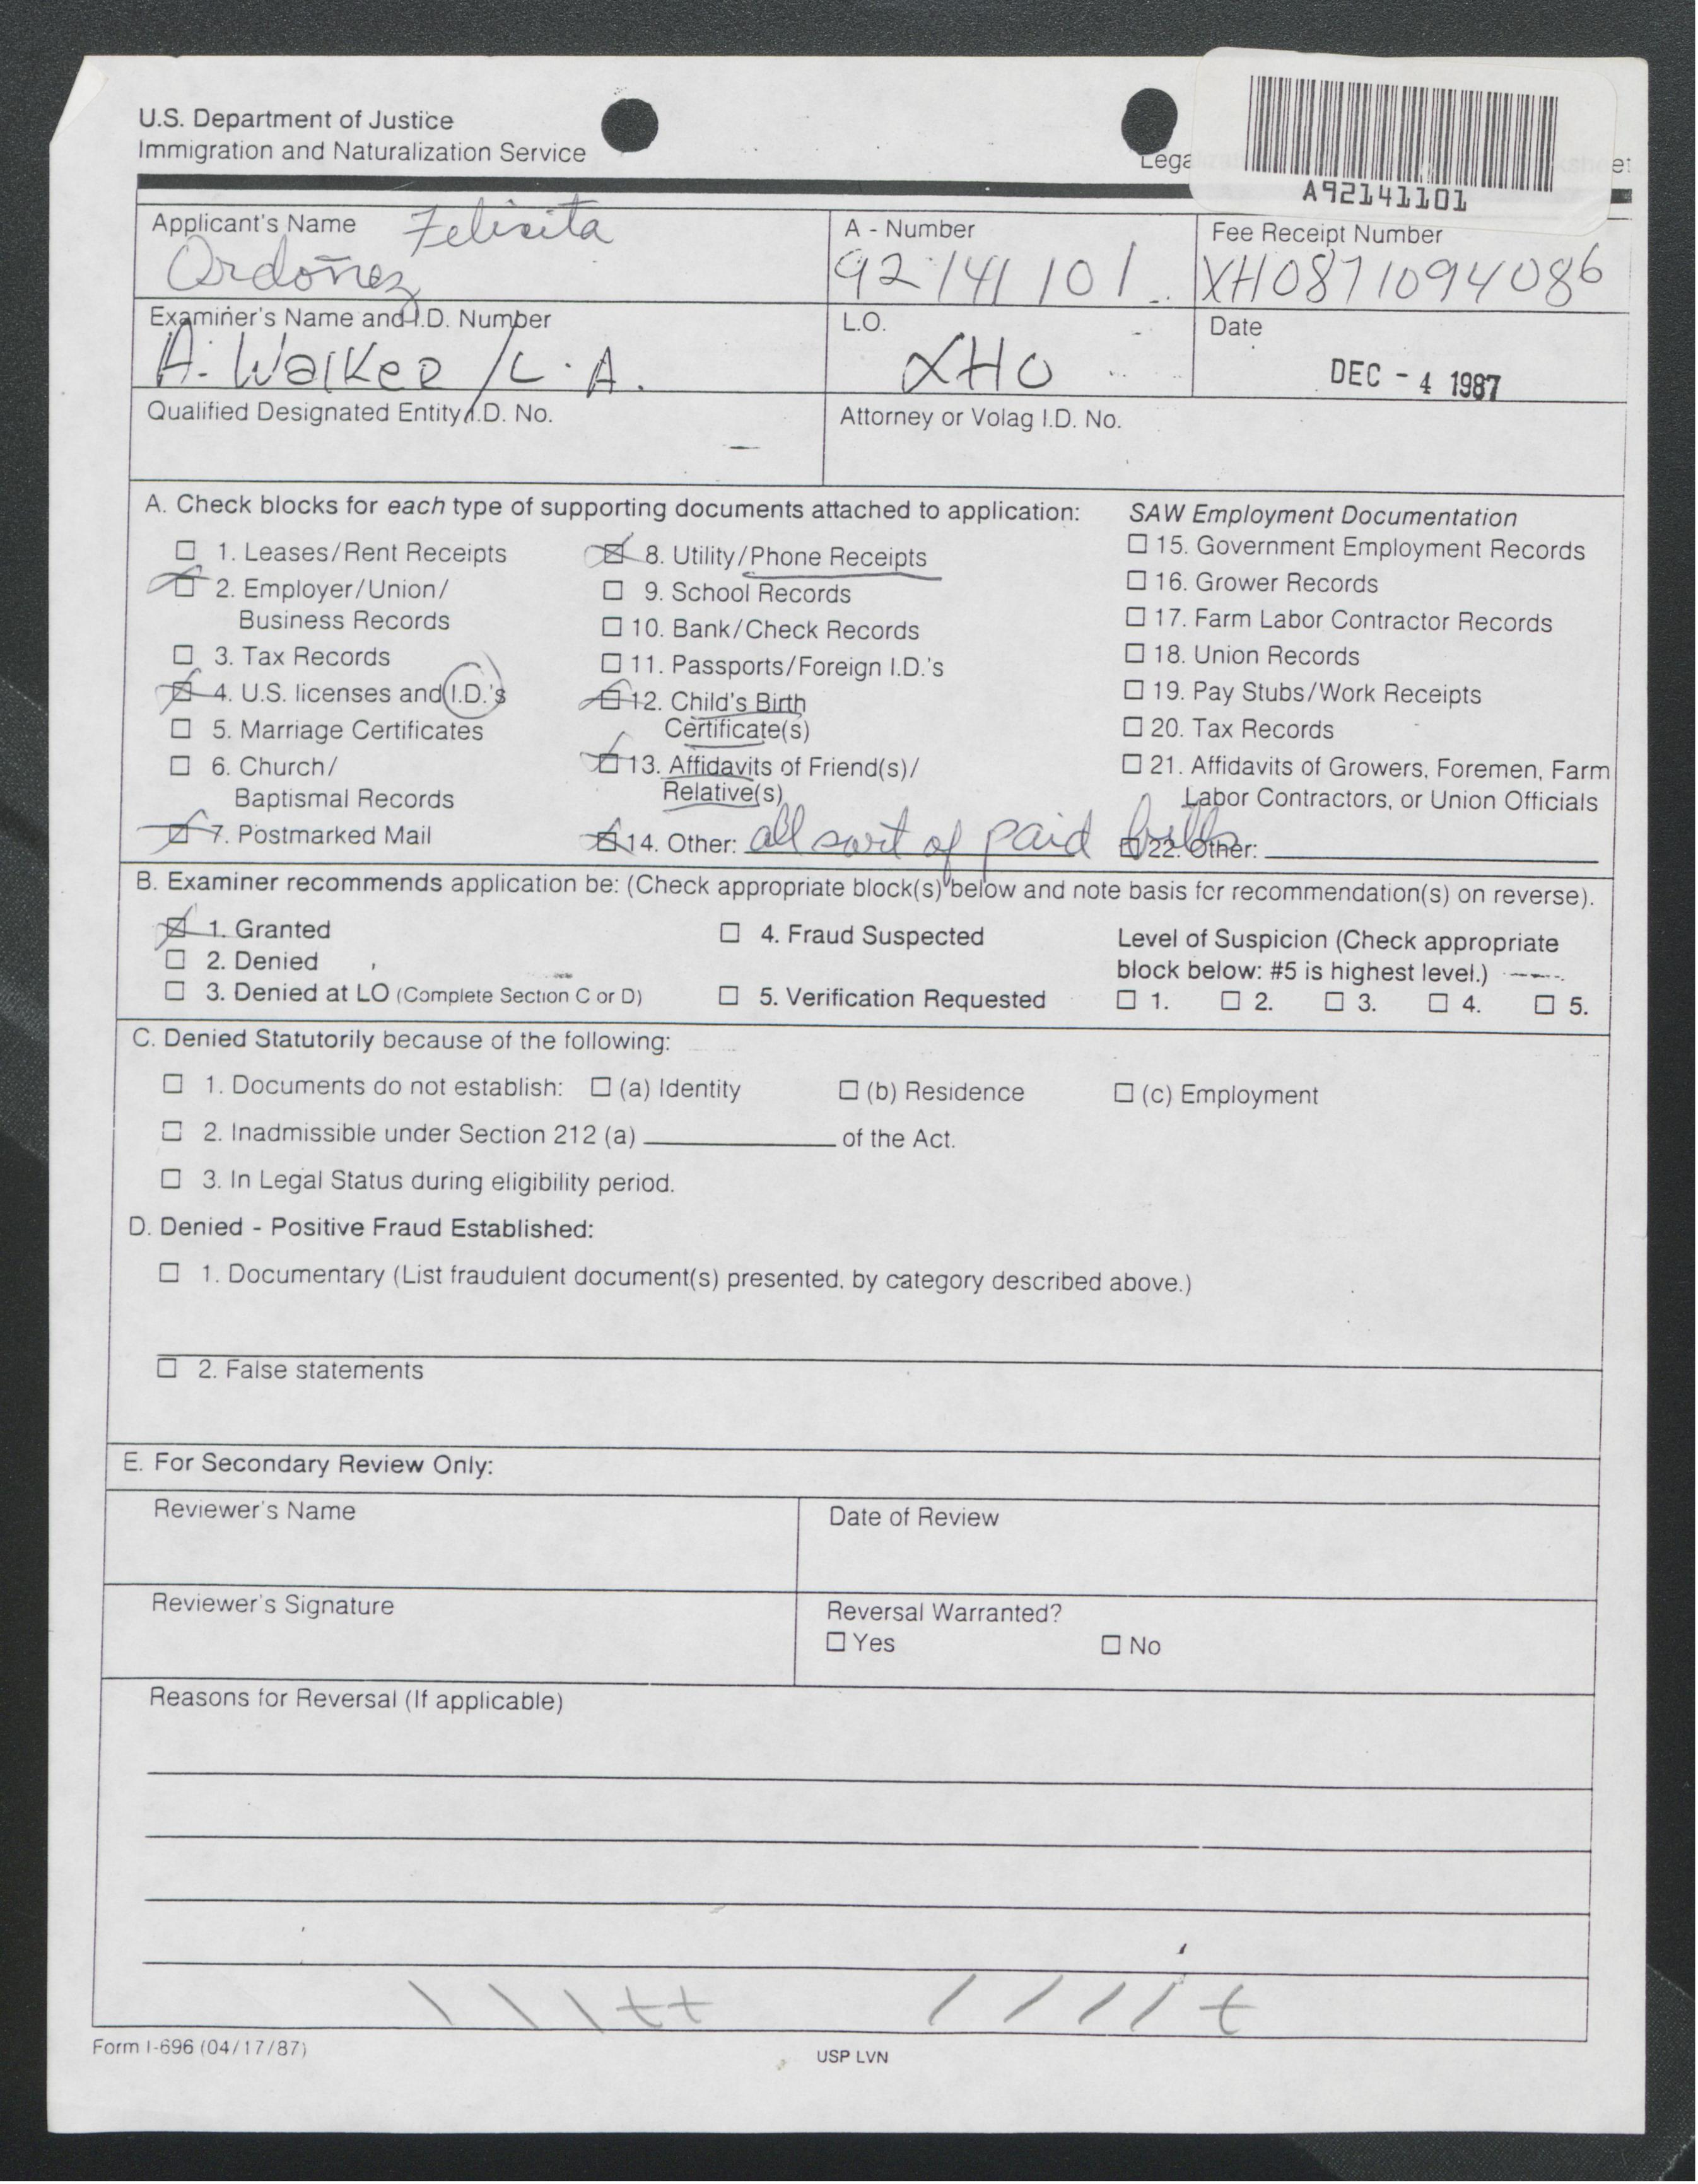 U.S. Department of Justice
Immigration and Naturalization Service
Lega
A92141101
Applicant's Name Felicita
Ordoñez
A - Number
92 141 101
Fee Receipt Number
XH0871094086
Examiner's Name and I.D. Number
A. Walker / L.A.
L.O.
XHO
Date
DEC - 4 1987
Qualified Designated Entity I.D. No.
Attorney or Volag I.D. No.
A. Check blocks for each type of supporting documents attached to application:
☐ 1. Leases/Rent Receipts
☑ 2. Employer/Union/
Business Records
☐ 3. Tax Records
☑ 4. U.S. licenses and I.D.'s
☐ 5. Marriage Certificates
☐ 6. Church/
Baptismal Records
☑ 7. Postmarked Mail
☑ 8. Utility/Phone Receipts
☐ 9. School Records
☐ 10. Bank/Check Records
☐ 11. Passports/Foreign I.D.'s
☑ 12. Child's Birth
Certificate(s)
☑ 13. Affidavits of Friend(s)/
Relative(s)
☑ 14. Other: all sort of paid bills
SAW Employment Documentation
☐ 15. Government Employment Records
☐ 16. Grower Records
☐ 17. Farm Labor Contractor Records
☐ 18. Union Records
☐ 19. Pay Stubs/Work Receipts
☐ 20. Tax Records
☐ 21. Affidavits of Growers, Foremen, Farm
Labor Contractors, or Union Officials
☐ 22. Other:
B. Examiner recommends application be: (Check appropriate block(s) below and note basis for recommendation(s) on reverse).
☑ 1. Granted
☐ 2. Denied
☐ 3. Denied at LO (Complete Section C or D)
☐ 4. Fraud Suspected
☐ 5. Verification Requested
Level of Suspicion (Check appropriate
block below: #5 is highest level.)
☐ 1. ☐ 2. ☐ 3. ☐ 4. ☐ 5.
C. Denied Statutorily because of the following:
☐ 1. Documents do not establish: ☐ (a) Identity ☐ (b) Residence ☐ (c) Employment
☐ 2. Inadmissible under Section 212 (a) of the Act.
☐ 3. In Legal Status during eligibility period.
D. Denied - Positive Fraud Established:
☐ 1. Documentary (List fraudulent document(s) presented, by category described above.)
☐ 2. False statements
E. For Secondary Review Only:
Reviewer's Name
Date of Review
Reviewer's Signature
Reversal Warranted?
☐ Yes ☐ No
Reasons for Reversal (If applicable)
Form I-696 (04/17/87)
USP LVN